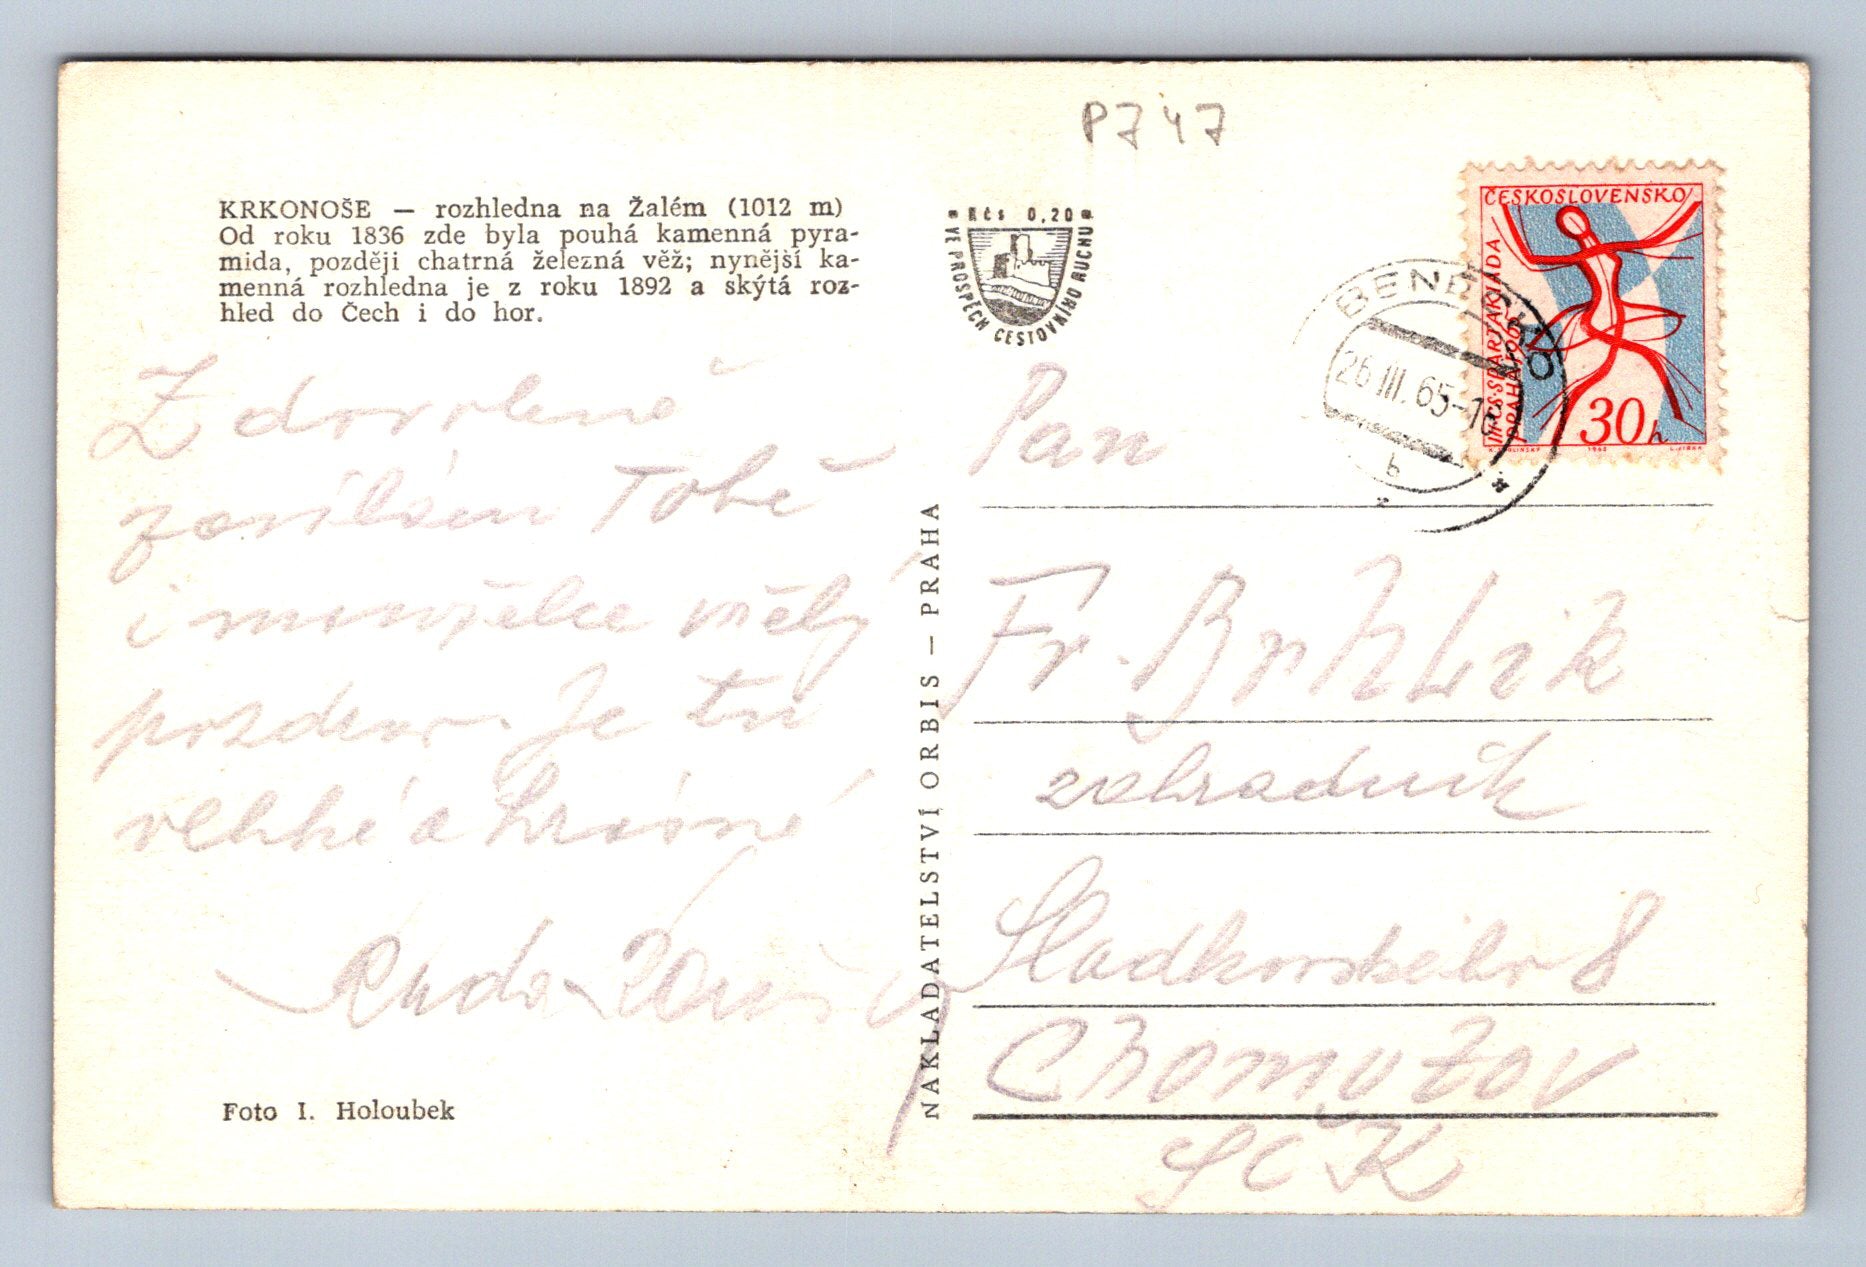 P747
KRKONOŠE — rozhledna na Žalém (1012 m)
Od roku 1836 zde byla pouhá kamenná pyra-
mida, později chatrná železná věž; nynější ka-
menná rozhledna je z roku 1892 a skýtá roz-
hled do Čech i do hor.
Kčs 0,20
VE PROSPĚCH CESTOVNÍHO RUCHU
ČESKOSLOVENSKO
III. CS. SPARTAKIÁDA
PRAHA 1965
30 h
BENECKO
26.III.65-16
b
Z dovolené
zasílám Tobě
i manželce vřelý
pozdrav. Je tu
veliké a krásné
Ruda
Foto I. Holoubek
NAKLADATELSTVÍ ORBIS — PRAHA
Pan
Fr.
zahradník
Sladkovského 8
Chomutov